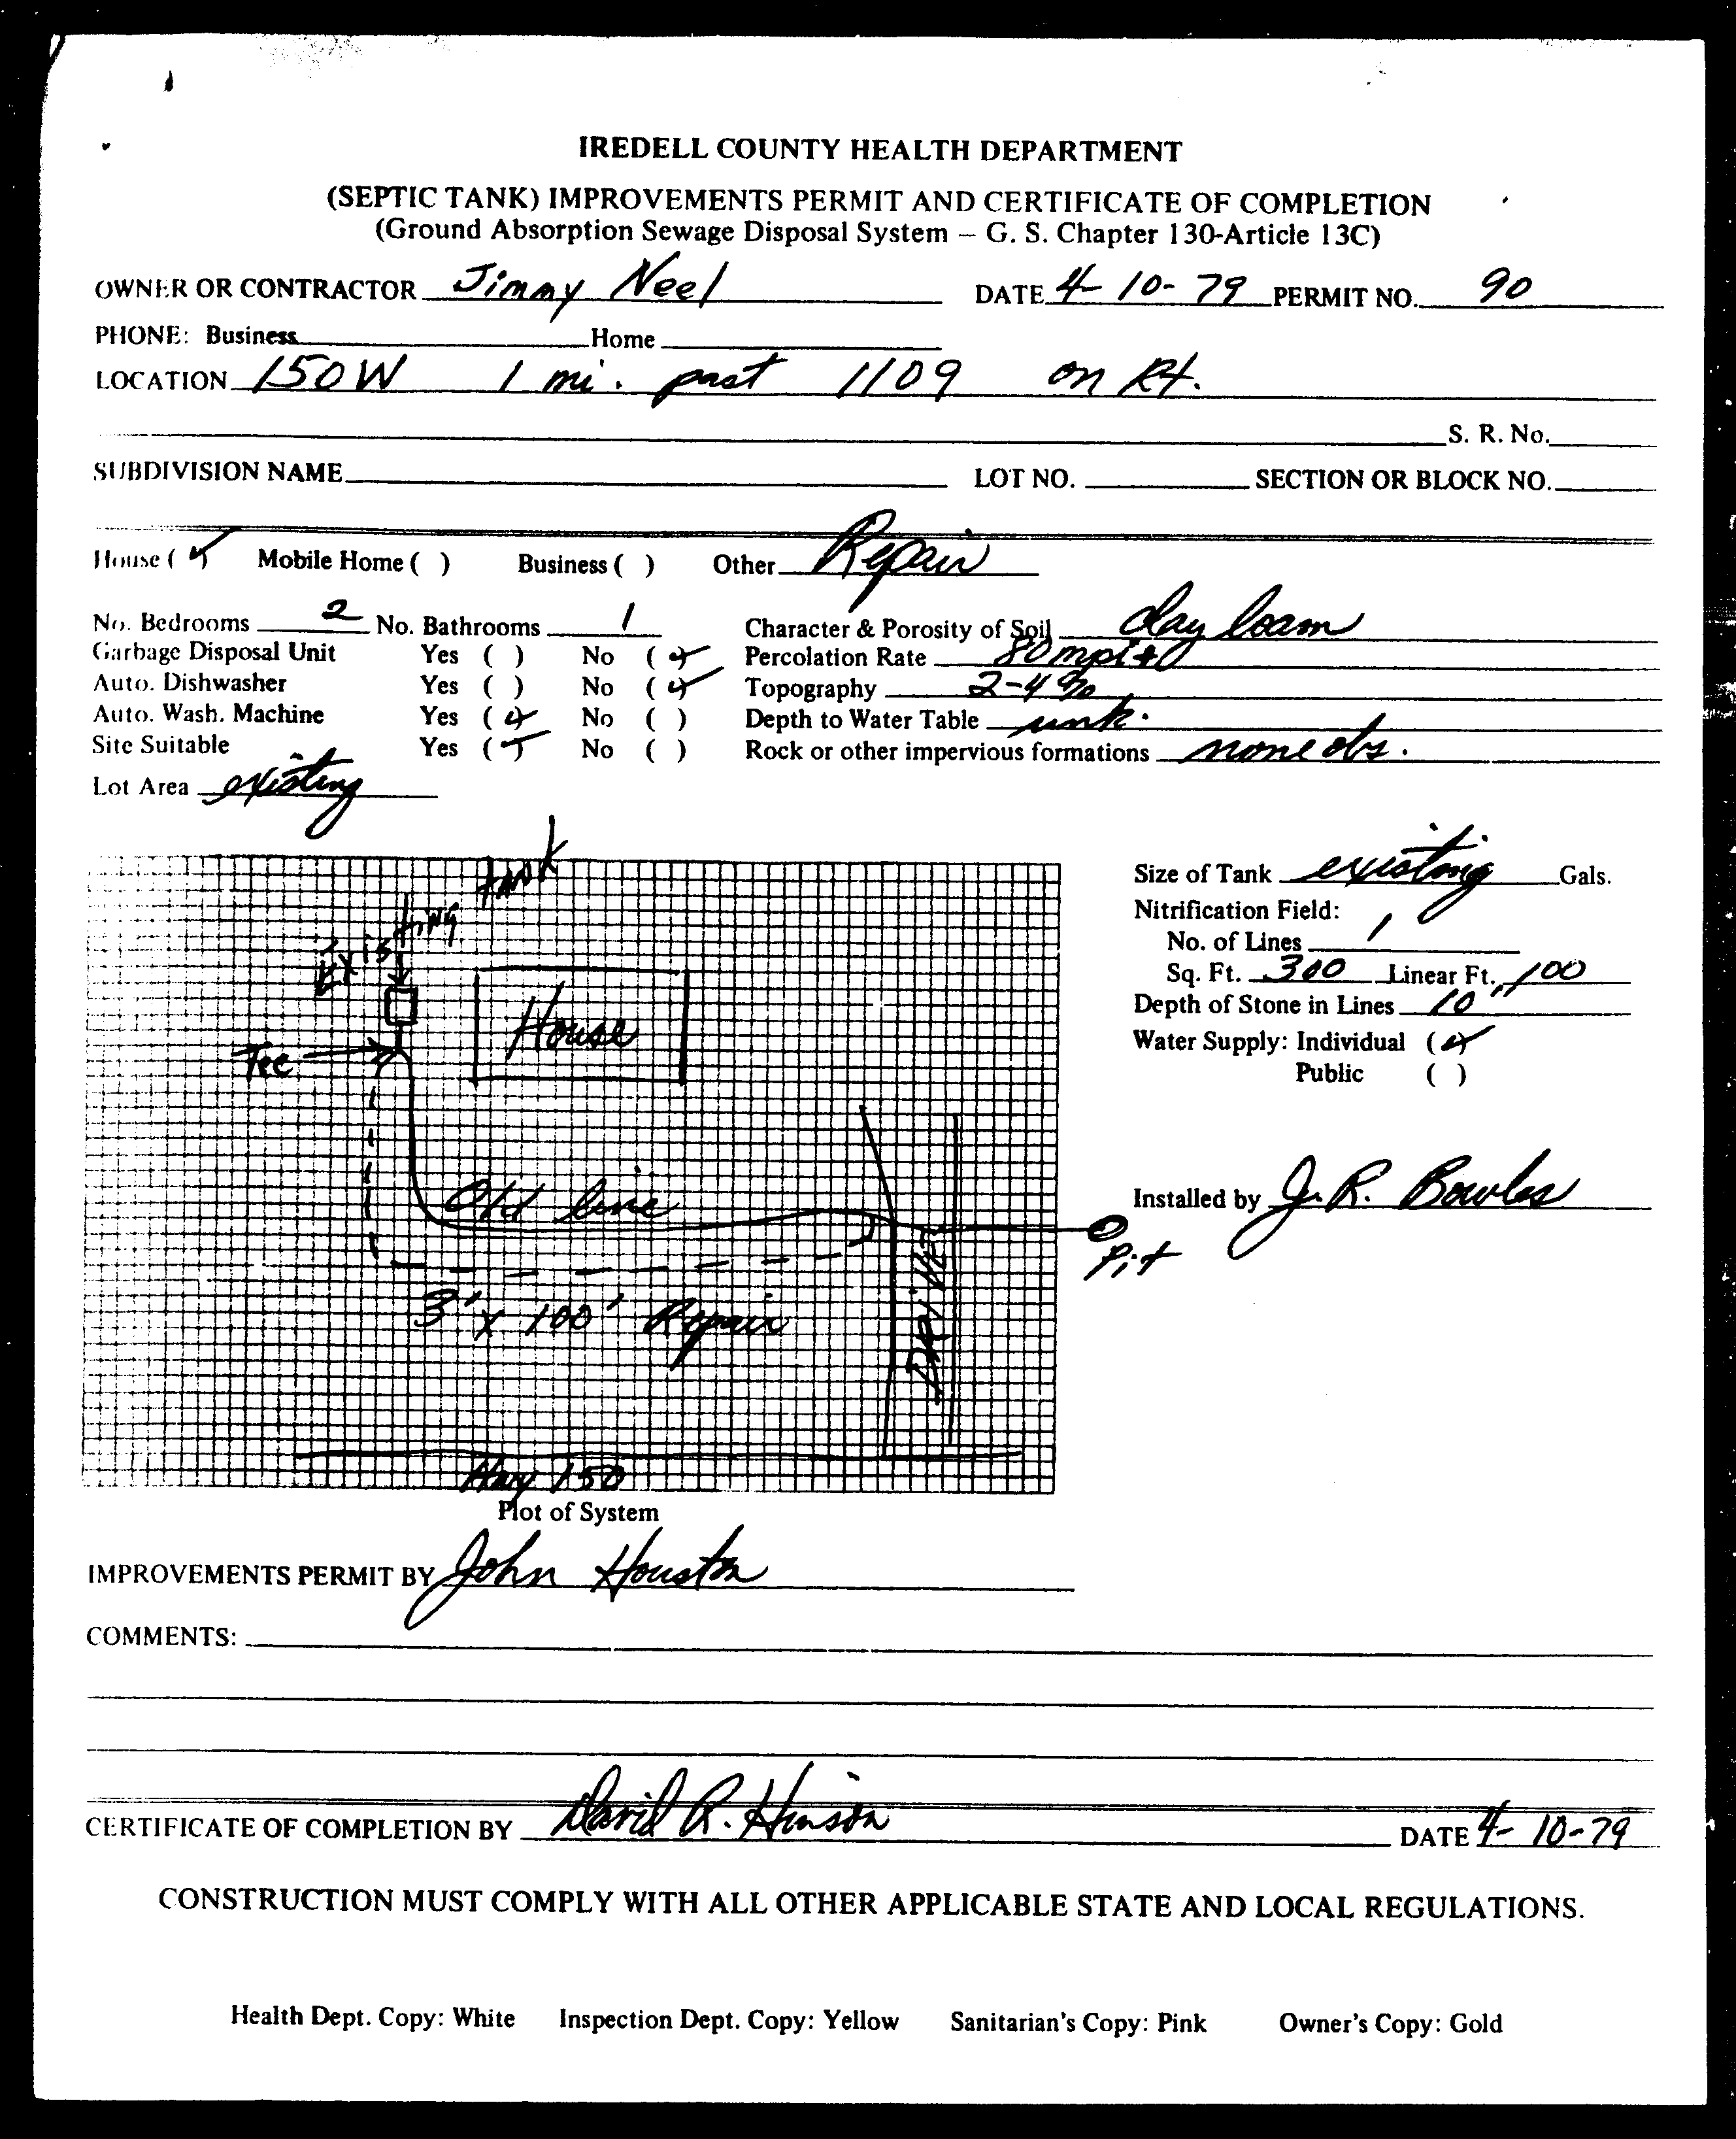 IREDELL COUNTY HEALTH DEPARTMENT
(SEPTIC TANK) IMPROVEMENTS PERMIT AND CERTIFICATE OF COMPLETION
(Ground Absorption Sewage Disposal System – G. S. Chapter 130-Article 13C)
OWNER OR CONTRACTOR Jimmy Neel DATE 4-10-79 PERMIT NO. 90
PHONE: Business Home
LOCATION 150W 1 mi. past 1109 on Rt.
S. R. No.
SUBDIVISION NAME LOT NO. SECTION OR BLOCK NO.
House (✓) Mobile Home ( ) Business ( ) Other Repair
No. Bedrooms 2 No. Bathrooms 1 Character & Porosity of Soil clay loam
Garbage Disposal Unit Yes ( ) No (✓) Percolation Rate 80 mpi +
Auto. Dishwasher Yes ( ) No (✓) Topography 2-4%
Auto. Wash. Machine Yes (✓) No ( ) Depth to Water Table unk.
Site Suitable Yes (✓) No ( ) Rock or other impervious formations none obs.
Lot Area existing
tank
Existing
House
Tee
Old line
3' x 100' Repair
DRIVE
Pit
Hwy 150
Plot of System
Size of Tank existing Gals.
Nitrification Field:
No. of Lines 1
Sq. Ft. 300 Linear Ft. 100
Depth of Stone in Lines 10"
Water Supply: Individual (✓)
Public ( )
Installed by J. R. Bowles
IMPROVEMENTS PERMIT BY John Houston
COMMENTS:
CERTIFICATE OF COMPLETION BY David R. Hinson DATE 4-10-79
CONSTRUCTION MUST COMPLY WITH ALL OTHER APPLICABLE STATE AND LOCAL REGULATIONS.
Health Dept. Copy: White Inspection Dept. Copy: Yellow Sanitarian's Copy: Pink Owner's Copy: Gold